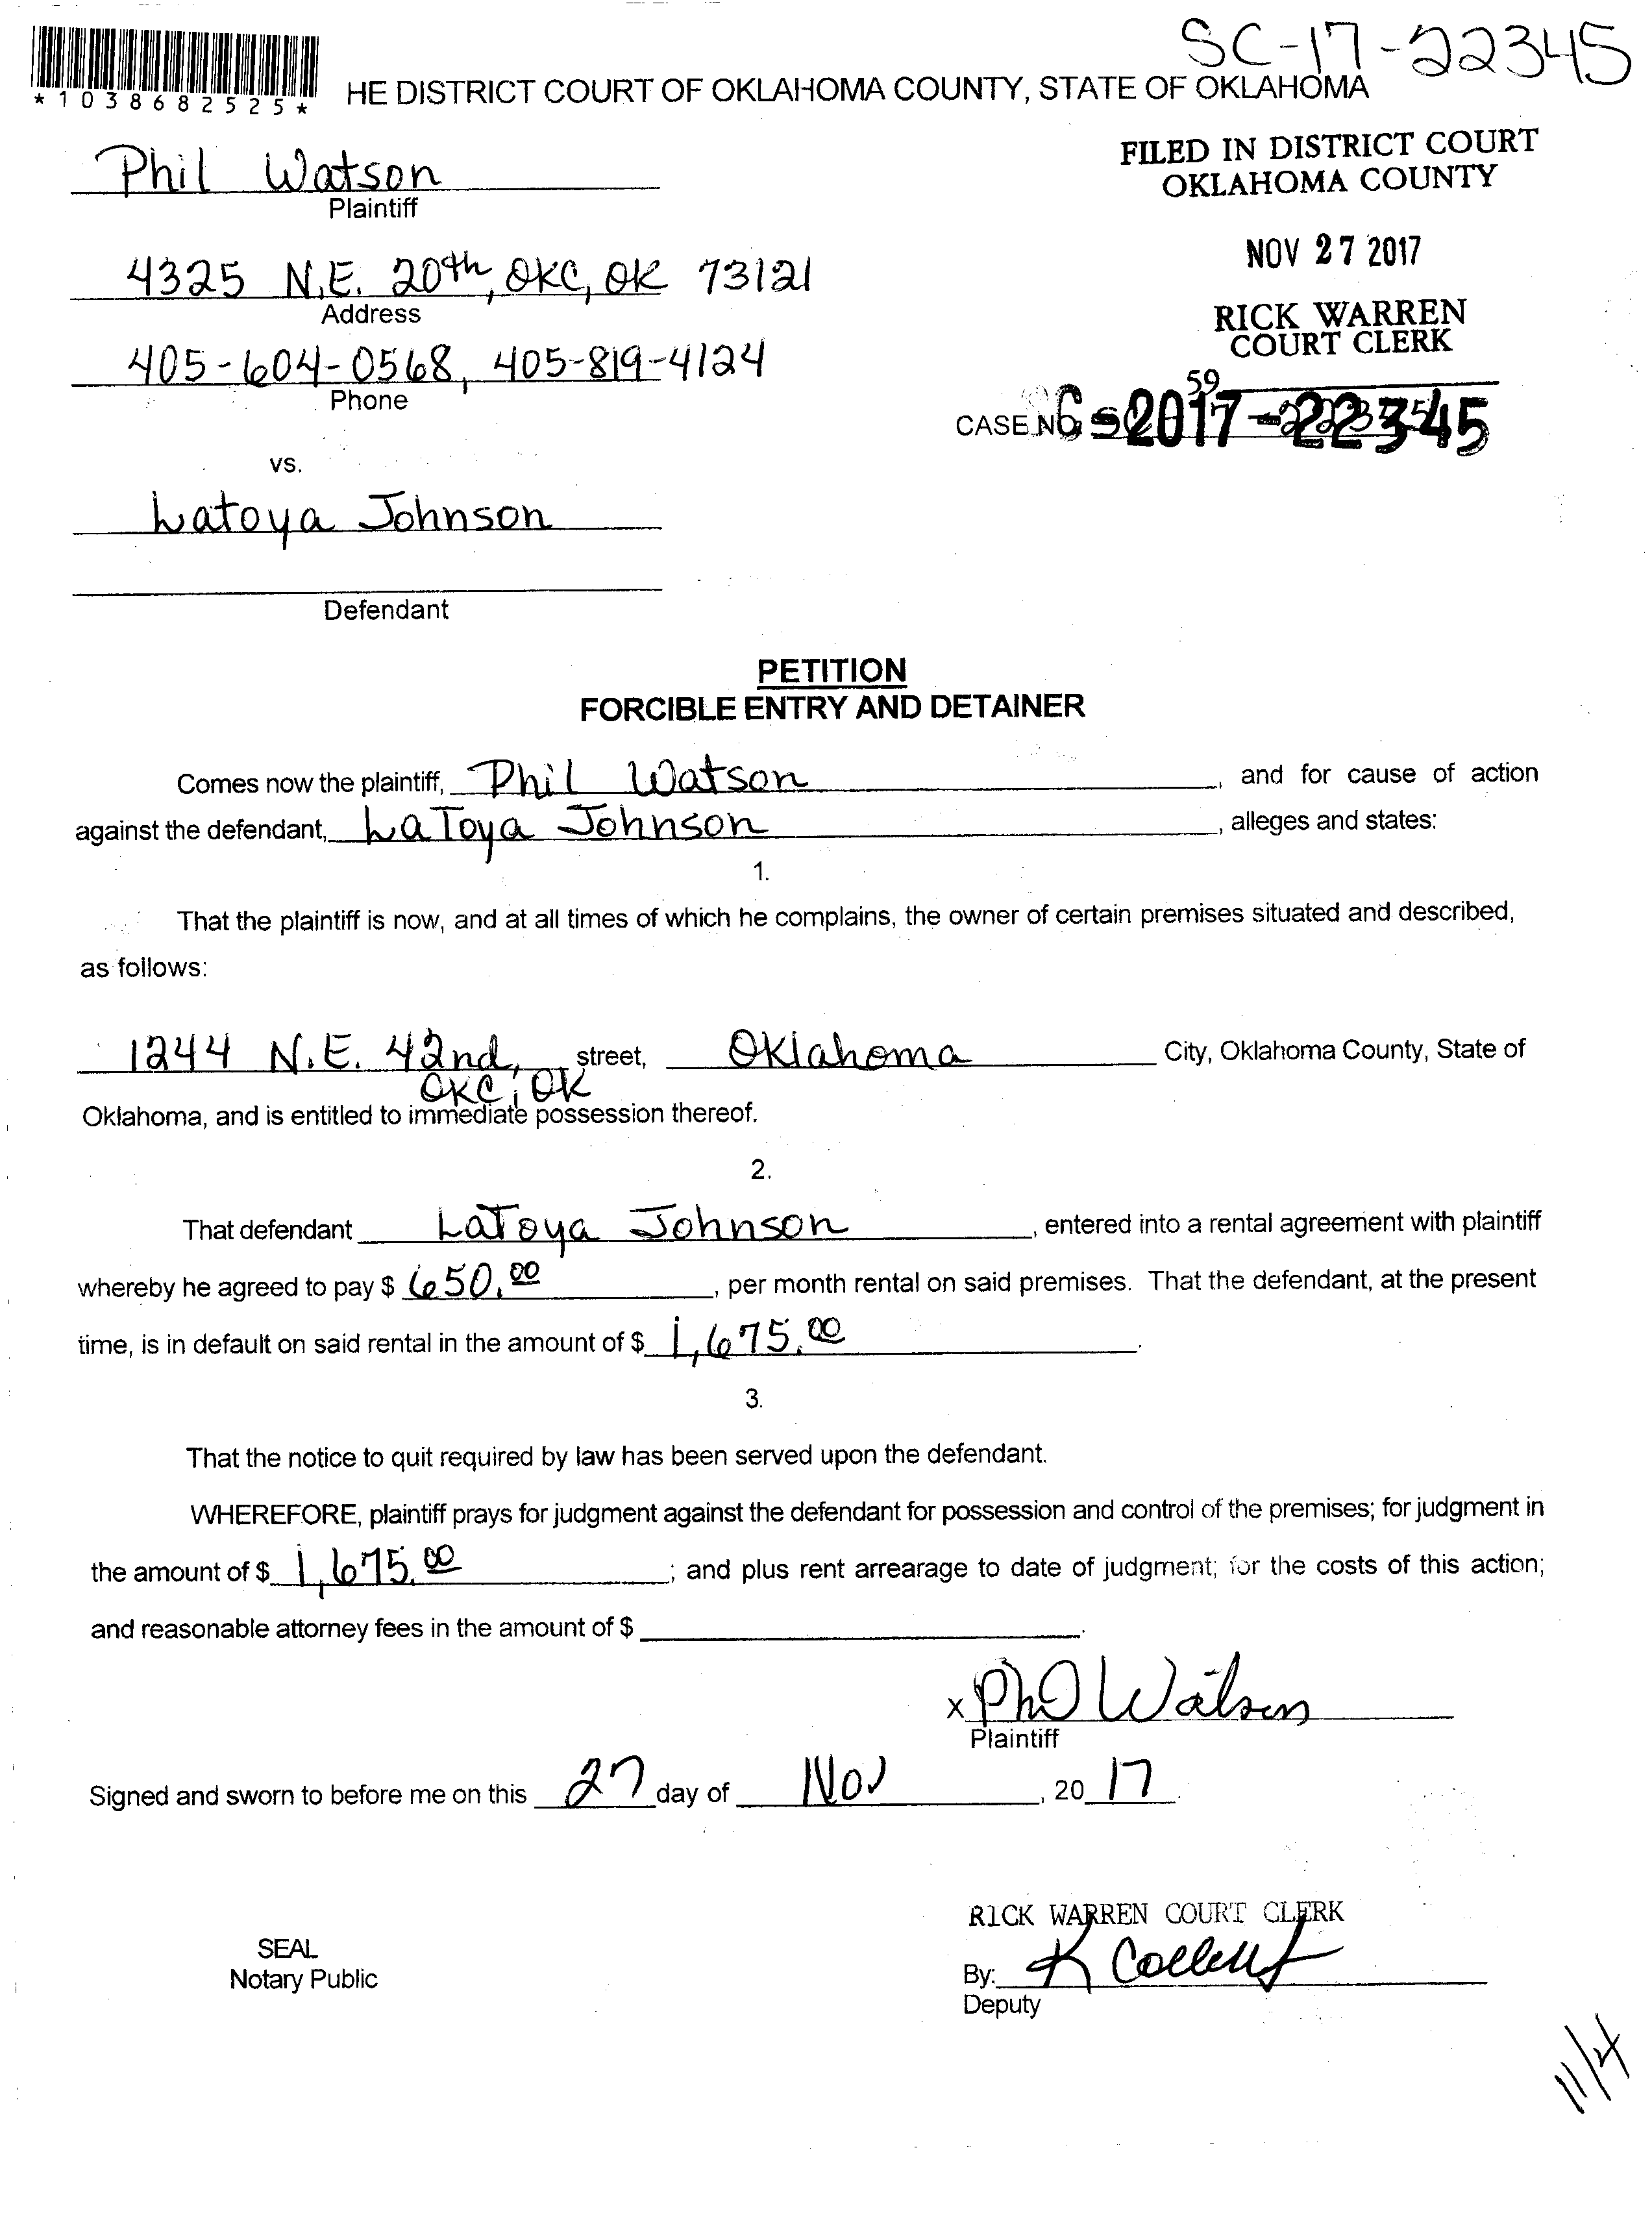 SC-17-22345
*1038682525*
HE DISTRICT COURT OF OKLAHOMA COUNTY, STATE OF OKLAHOMA
FILED IN DISTRICT COURT
OKLAHOMA COUNTY
Phil Watson
Plaintiff
NOV 27 2017
4325 N.E. 20th, OKC, OK 73121
Address
RICK WARREN
COURT CLERK
405-604-0568, 405-819-4124
Phone
59
CASE NO. 2017-22345
vs.
Latoya Johnson
Defendant
PETITION
FORCIBLE ENTRY AND DETAINER
Comes now the plaintiff, Phil Watson, and for cause of action
against the defendant, LaToya Johnson, alleges and states:
1.
That the plaintiff is now, and at all times of which he complains, the owner of certain premises situated and described,
as follows:
1244 N.E. 42nd, street, Oklahoma City, Oklahoma County, State of
OKC, OK
Oklahoma, and is entitled to immediate possession thereof.
2.
That defendant LaToya Johnson, entered into a rental agreement with plaintiff
whereby he agreed to pay $ 650.00, per month rental on said premises. That the defendant, at the present
time, is in default on said rental in the amount of $ 1,675.00.
3.
That the notice to quit required by law has been served upon the defendant.
WHEREFORE, plaintiff prays for judgment against the defendant for possession and control of the premises; for judgment in
the amount of $ 1,675.00; and plus rent arrearage to date of judgment; for the costs of this action;
and reasonable attorney fees in the amount of $
x Phil Watson
Plaintiff
Signed and sworn to before me on this 27 day of Nov, 2017.
RICK WARREN COURT CLERK
SEAL
Notary Public
By: K
Deputy
11/4